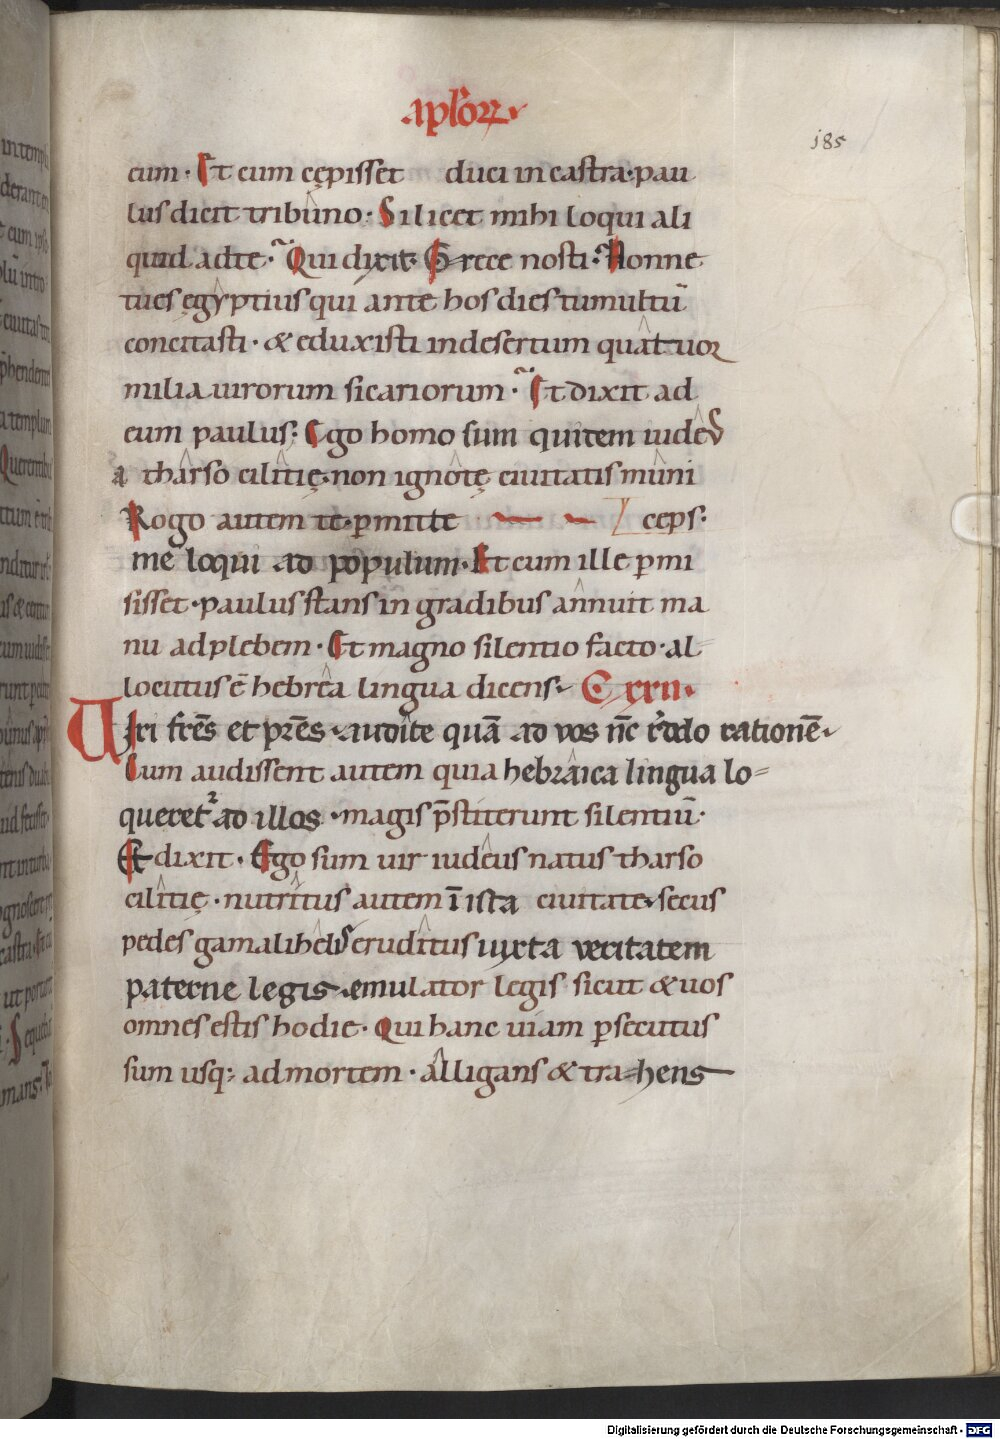 aplorꝝ.
185
eum · Et cum cępisset duci in castra · pau
lus dicit tribuno · Si licet mihi loqui ali
quid ad te · Qui dixit · Grece nosti · Nonne
tu es egyptius qui ante hos dies tumultū
concitasti · & eduxisti in desertum quattuor
milia uirorum sicariorum · Et dixit ad
eum paulus · Ego homo sum quidem iudeꝰ
a tharso cilitię · non ignotę ciuitatis muni
Rogo autem te · ꝑmitte ceps ·
me loqui ad populum · Et cum ille ꝑmi
sisset · paulus stans in gradibus annuit ma
nu ad plebem · Et magno silentio facto · al-
locutus ē hebrea lingua dicens · C xxii ·
Uiri fr̄es et pr̄es · audite quā ad vos n̄c reddo rationē ·
Cum audissent autem quia hebraica lingua lo-
queret᷑ ad illos · magis p̄stiterunt silentiū ·
Et dixit · Ego sum uir iudeus natus tharso
cilitię · nutritus autem ī ista ciuitate · secus
pedes gamaliheliſ eruditus iuxta veritatem
paterne legis · emulator legis sicut & uos
omnes estis hodie · Qui hanc uiam ꝑsecutus
sum usq; ad mortem · alligans & tra-hens
Digitalisierung gefördert durch die Deutsche Forschungsgemeinschaft - DFG